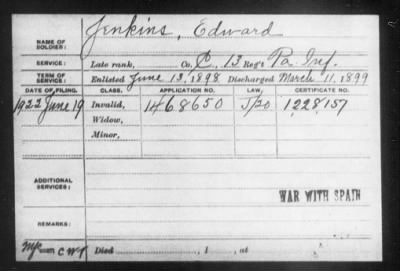 NAME OF SOLDIER: Jenkins, Edward
SERVICE: Late rank, Co. C, 13 Reg't Pa Inf.
TERM OF SERVICE: Enlisted June 13, 1898 Discharged March 11, 1899
DATE OF FILING. CLASS. APPLICATION NO. LAW. CERTIFICATE NO.
1922 June 19 Invalid, 1468650 J/20 1,228,157
Widow,
Minor,
ADDITIONAL SERVICES:
WAR WITH SPAIN
REMARKS:
Died , 1 , at